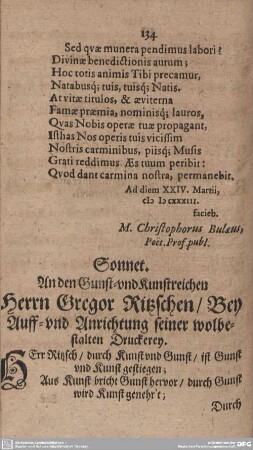 134
Sed qvæ munera pendimus labori?
Divinæ benedictionis aurum;
Hoc totis animis Tibi precamur,
Natabusq; tuis, tuisq; Natis.
At vitæ titulos, & æviterna
Famæ præmia, nominisq; lauros,
Qvas Nobis operæ tuæ propagant,
Isthas Nos operis tuis vicissim
Nostris carminibus, piisq; Musis
Grati reddimus Æs tuum peribit:
Qvod dant carmina nostra, permanebit.
Ad diem XXIV. Martii,
cIɔ Iɔ cxxxiii.
facieb.
M. Christophorus Bulæus,
Poët. Prof. publ.
Sonnet.
An den Gunst-vnd Kunstreichen
Herrn Gregor Ritzschen/ Bey
Auff- vnd Anrichtung seiner wolbe-
stalten Druckerey.
HErr Ritzsch/ durch Kunst vnd Gunst/ ist Gunst
vnd Kunst gestiegen;
Aus Kunst bricht Gunst hervor/ durch Gunst
wird Kunst genehr't;
Durch